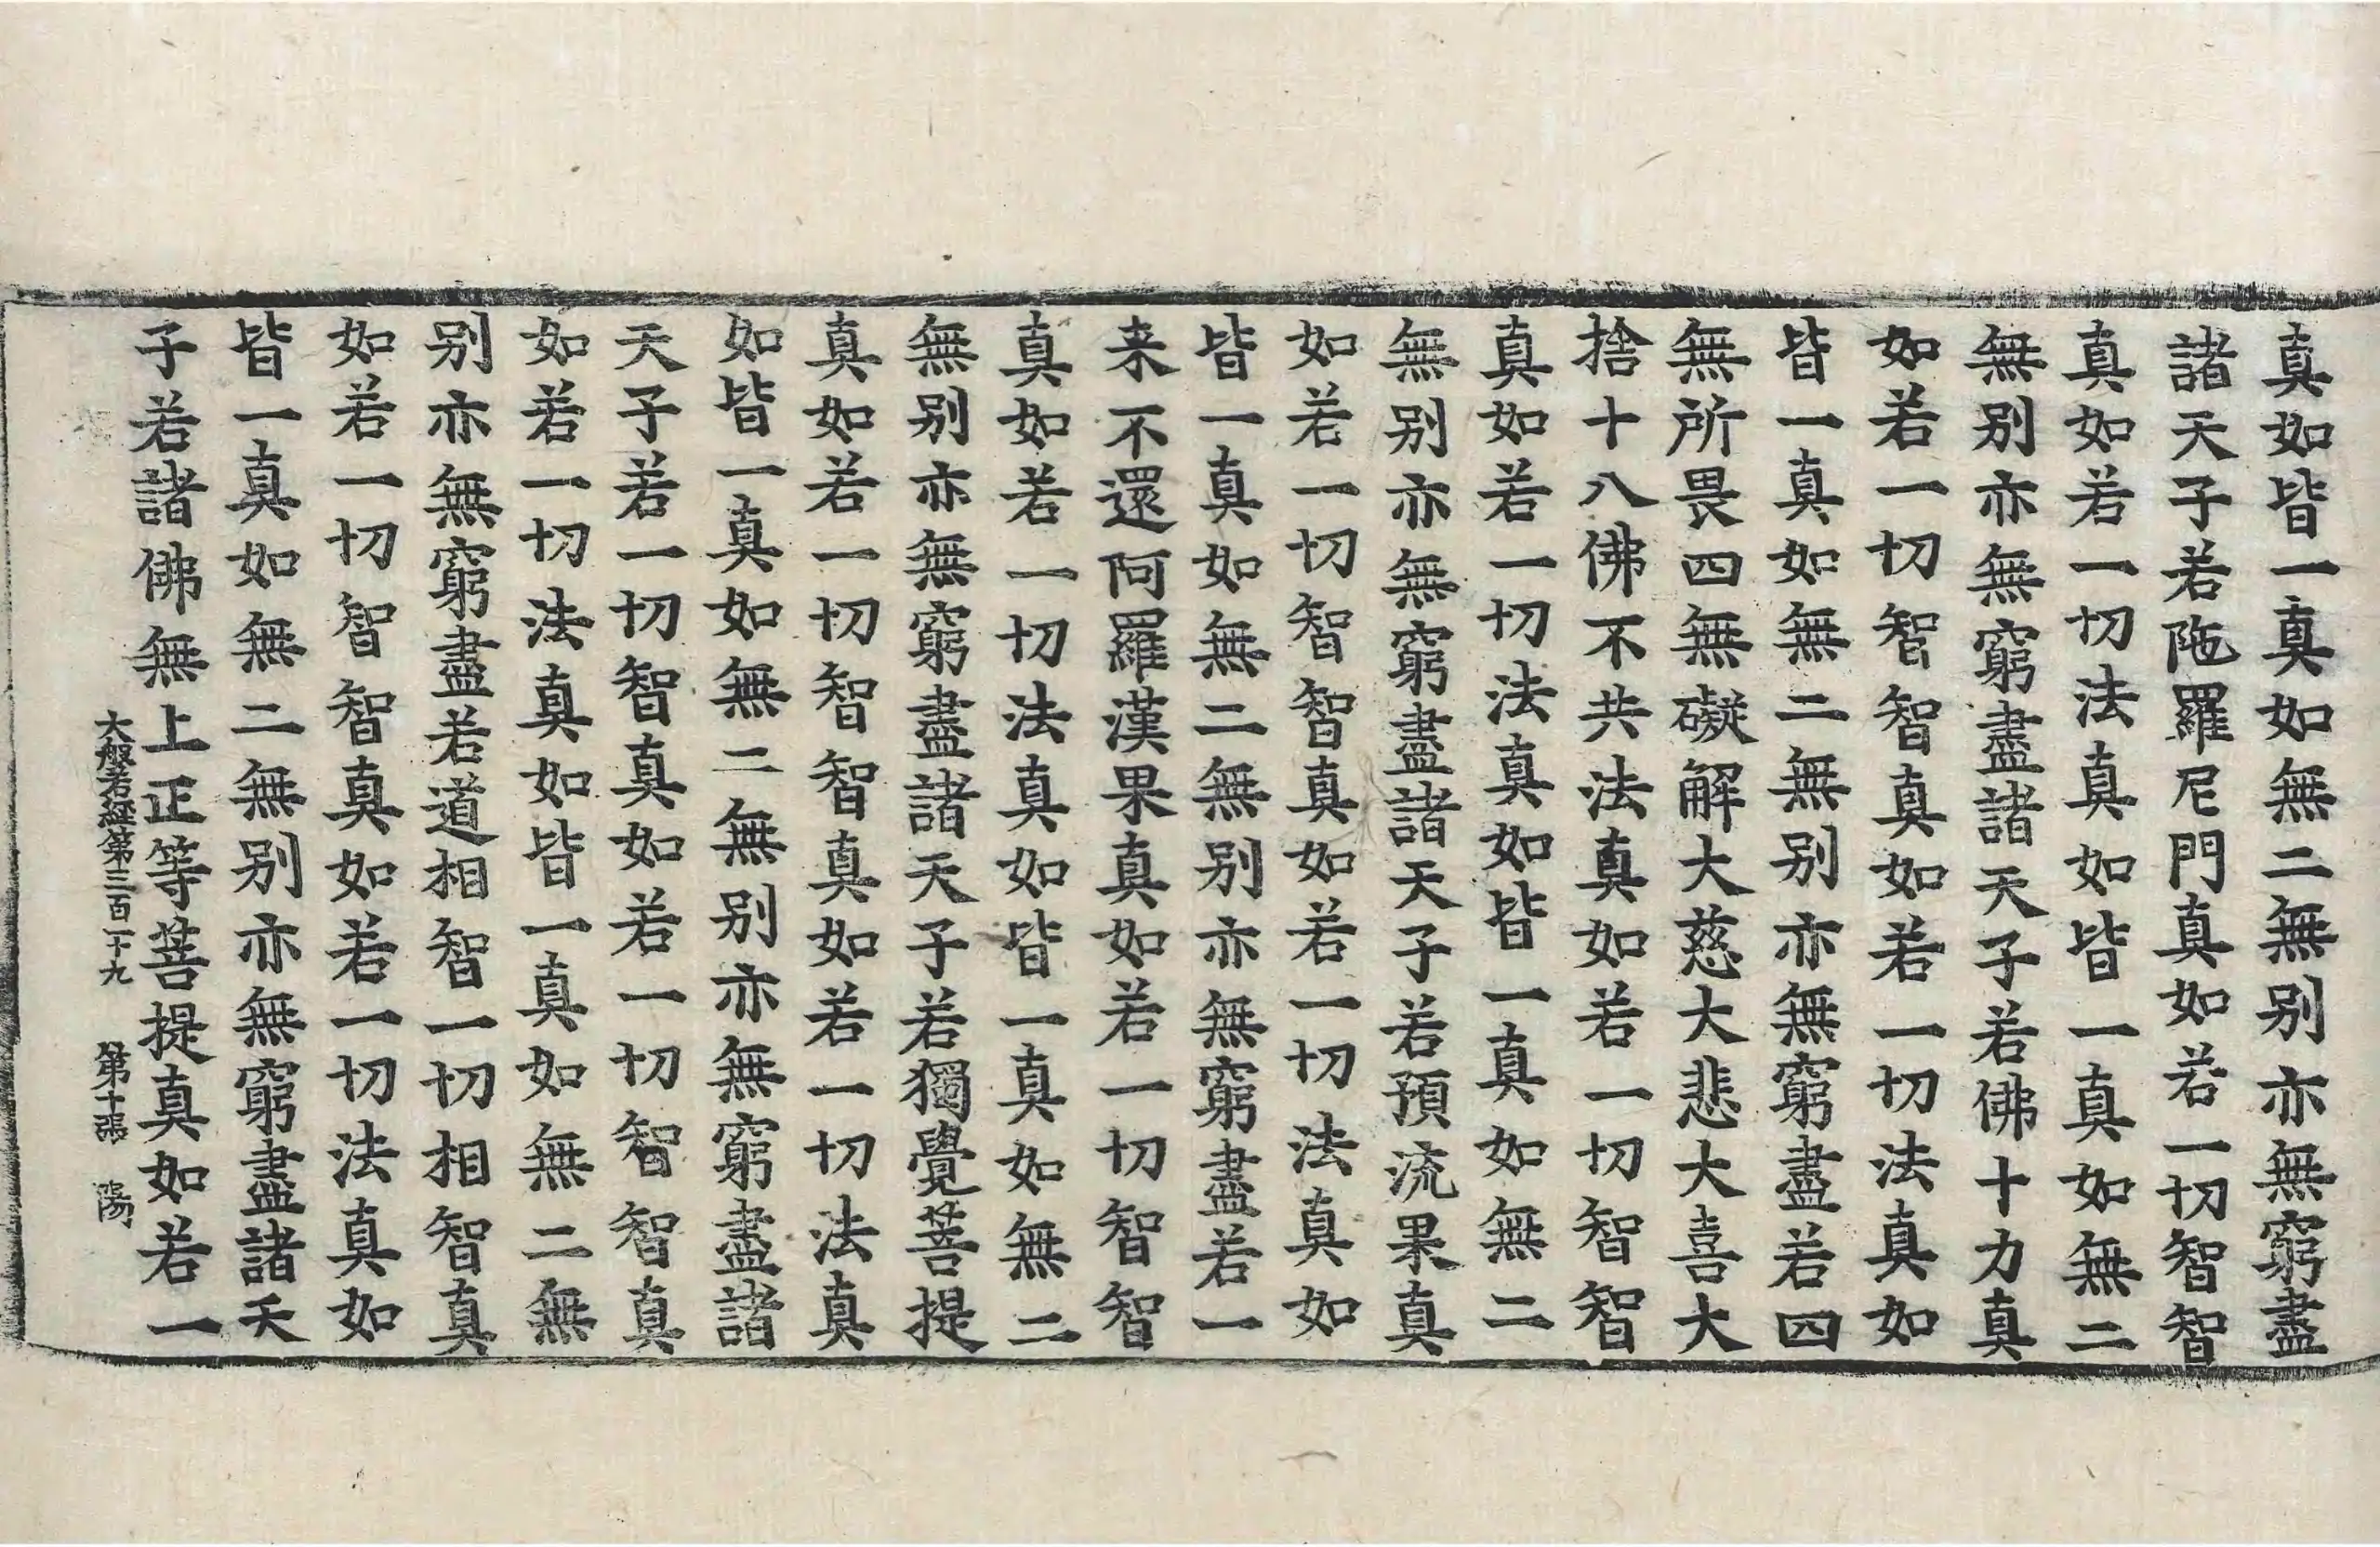 真如皆一真如無二無别亦無窮盡
諸天子若陁羅尼門真如若一切智智
真如若一切法真如皆一真如無二
無别亦無窮盡諸天子若佛十力真
如若一切智智真如若一切法真如
皆一真如無二無别亦無窮盡若四
無所畏四無礙解大慈大悲大喜大
捨十八佛不共法真如若一切智智
真如若一切法真如皆一真如無二
無别亦無窮盡諸天子若預流果真
如若一切智智真如若一切法真如
皆一真如無二無别亦無窮盡若一
来不還阿羅漢果真如若一切智智
真如若一切法真如皆一真如無二
無别亦無窮盡諸天子若獨覺菩提
真如若一切智智真如若一切法真
如皆一真如無二無别亦無窮盡諸
天子若一切智真如若一切智智真
如若一切法真如皆一真如無二無
别亦無窮盡若道相智一切相智真
如若一切智智真如若一切法真如
皆一真如無二無别亦無窮盡諸天
子若諸佛無上正等菩提真如若一
大般若經第三百二十九 第十張 陽